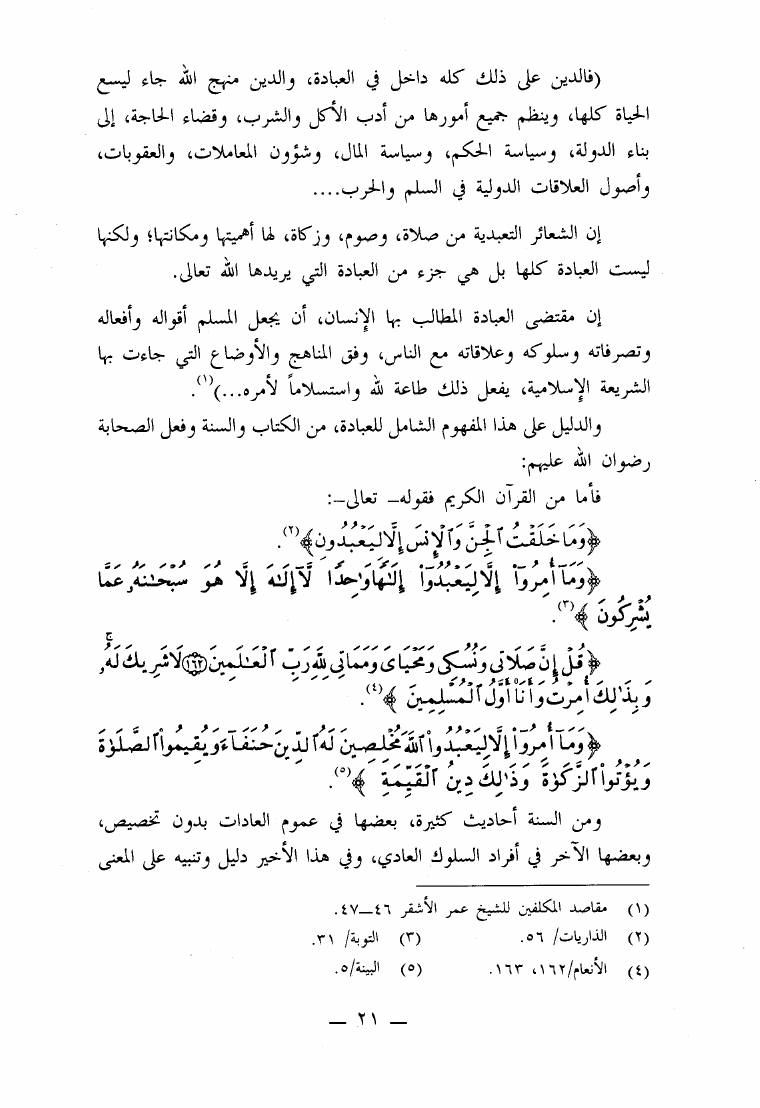 (فالدين على ذلك كله داخل في العبادة، والدين منهج الله جاء ليسع
الحياة كلها، وينظم جميع أمورها من أدب الأكل والشرب، وقضاء الحاجة، إلى
بناء الدولة، وسياسة الحكم، وسياسة المال، وشؤون المعاملات، والعقوبات،
وأصول العلاقات الدولية في السلم والحرب....
إن الشعائر التعبدية من صلاة، وصوم، وزكاة، لها أهميتها ومكانتها؛ ولكنها
ليست العبادة كلها بل هي جزء من العبادة التي يريدها الله تعالى.
إن مقتضى العبادة المطالب بها الإنسان، أن يجعل المسلم أقواله وأفعاله
وتصرفاته وسلوكه وعلاقاته مع الناس، وفق المناهج والأوضاع التي جاءت بها
الشريعة الإسلامية، يفعل ذلك طاعة لله واستسلاماً لأمره...)(١).
والدليل على هذا المفهوم الشامل للعبادة، من الكتاب والسنة وفعل الصحابة
رضوان الله عليهم:
فأما من القرآن الكريم فقوله— تعالى—:
﴿وَمَا خَلَقْتُ ٱلْجِنَّ وَٱلْإِنسَ إِلَّا لِيَعْبُدُونِ﴾(٢).
﴿وَمَآ أُمِرُوٓا۟ إِلَّا لِيَعْبُدُوٓا۟ إِلَٰهًا وَٰحِدًا لَّآ إِلَٰهَ إِلَّا هُوَ سُبْحَٰنَهُۥ عَمَّا
يُشْرِكُونَ﴾(٣).
﴿قُلْ إِنَّ صَلَاتِى وَنُسُكِى وَمَحْيَاىَ وَمَمَاتِى لِلَّهِ رَبِّ ٱلْعَٰلَمِينَ ١٦٢ لَا شَرِيكَ لَهُۥ
وَبِذَٰلِكَ أُمِرْتُ وَأَنَا۠ أَوَّلُ ٱلْمُسْلِمِينَ﴾(٤).
﴿وَمَآ أُمِرُوٓا۟ إِلَّا لِيَعْبُدُوا۟ ٱللَّهَ مُخْلِصِينَ لَهُ ٱلدِّينَ حُنَفَآءَ وَيُقِيمُوا۟ ٱلصَّلَوٰةَ
وَيُؤْتُوا۟ ٱلزَّكَوٰةَ وَذَٰلِكَ دِينُ ٱلْقَيِّمَةِ﴾(٥).
ومن السنة أحاديث كثيرة، بعضها في عموم العادات بدون تخصيص،
وبعضها الآخر في أفراد السلوك العادي، وفي هذا الأخير دليل وتنبيه على المعنى
(١) مقاصد المكلفين للشيخ عمر الأشقر ٤٦—٤٧.
(٢) الذاريات/ ٥٦. (٣) التوبة/ ٣١.
(٤) الأنعام/١٦٢، ١٦٣. (٥) البينة/٥.
— ٢١ —